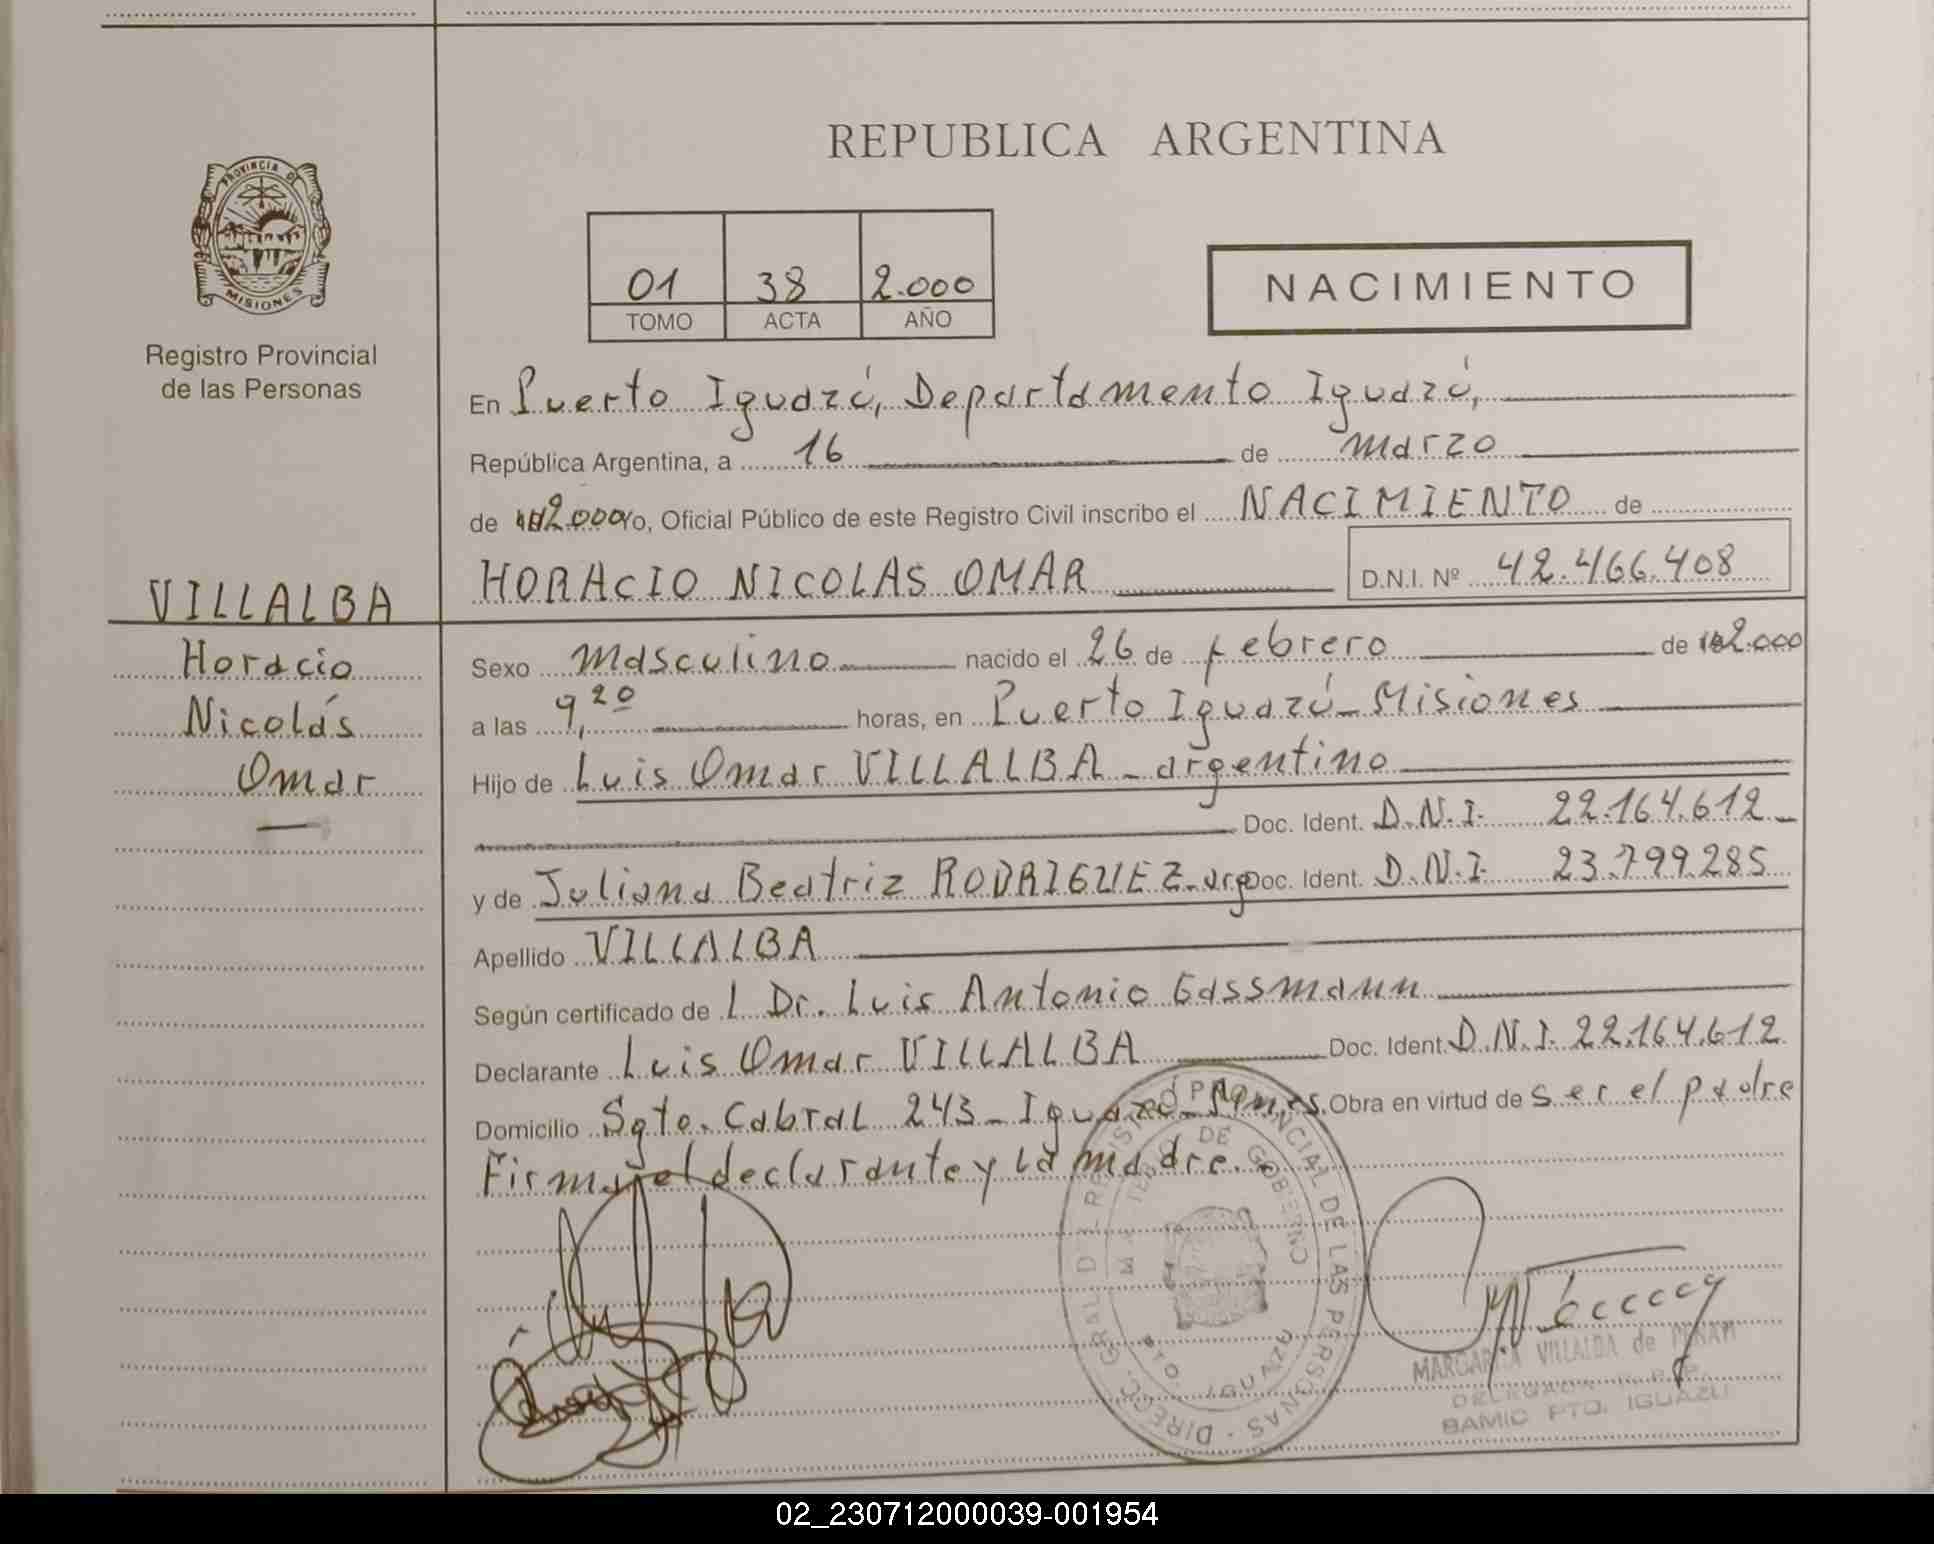 REPUBLICA ARGENTINA
PROVINCIA DE
MISIONES
Registro Provincial
de las Personas
01 38 2.000
TOMO ACTA AÑO
NACIMIENTO
En Puerto Iguazú, Departamento Iguazú,
República Argentina, a 16 de marzo
de 2.000 yo, Oficial Público de este Registro Civil inscribo el NACIMIENTO de
HORACIO NICOLAS OMAR D.N.I. Nº 42.466.408
VILLALBA
Horacio
Nicolás
Omar
Sexo masculino nacido el 26 de febrero de 2.000
a las 9,20 horas, en Puerto Iguazú - Misiones
Hijo de Luis Omar VILLALBA - argentino
Doc. Ident. D.N.I. 22.164.612
y de Juliana Beatriz RODRIGUEZ - arg Doc. Ident. D.N.I. 23.799.285
Apellido VILLALBA
Según certificado de l Dr. Luis Antonio Gassmann
Declarante Luis Omar VILLALBA Doc. Ident. D.N.I. 22.164.612
Domicilio Sgto. Cabral 243 - Iguazú - Mnes. Obra en virtud de ser el padre
Firma el declarante y la madre.
DIRECC. GRAL. DEL REGISTRO PROVINCIAL DE LAS PERSONAS
DE GOBIERNO
PTO. IGUAZU
MARGARITA VILLALBA de
DELEGADA R.P.P.
BAMIC PTO. IGUAZU
02_230712000039-001954